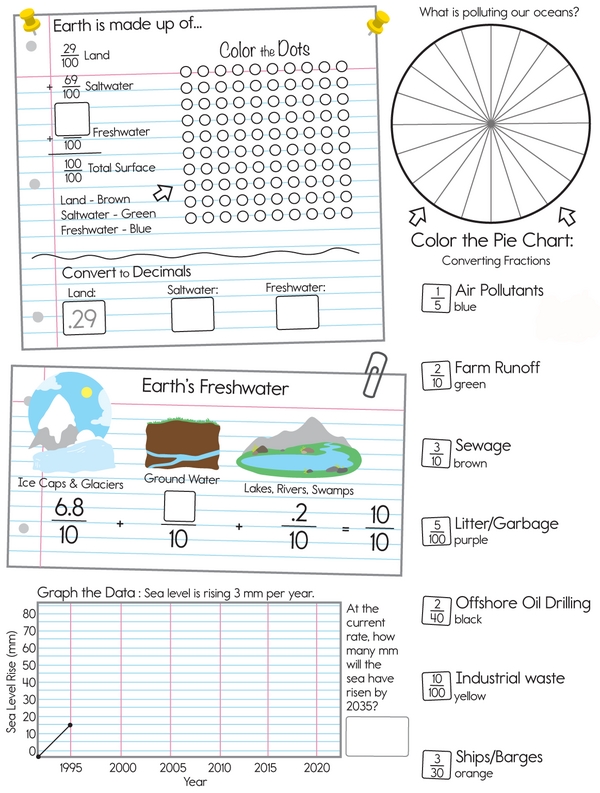 Earth is made up of...
29
100
Land
+
69
100
Saltwater
+
100
Freshwater
100
100
Total Surface
Land - Brown
Saltwater - Green
Freshwater - Blue
Color the Dots
Convert to Decimals
Land:
Saltwater:
Freshwater:
.29
What is polluting our oceans?
Color the Pie Chart:
Converting Fractions
1
5
Air Pollutants
blue
2
10
Farm Runoff
green
3
10
Sewage
brown
5
100
Litter/Garbage
purple
2
40
Offshore Oil Drilling
black
10
100
Industrial waste
yellow
3
30
Ships/Barges
orange
Earth's Freshwater
Ice Caps & Glaciers
Ground Water
Lakes, Rivers, Swamps
6.8
10
+
10
+
.2
10
=
10
10
Graph the Data : Sea level is rising 3 mm per year.
Sea Level Rise (mm)
80
70
60
50
40
30
20
10
0
1995
2000
2005
2010
2015
2020
Year
At the
current
rate, how
many mm
will the
sea have
risen by
2035?